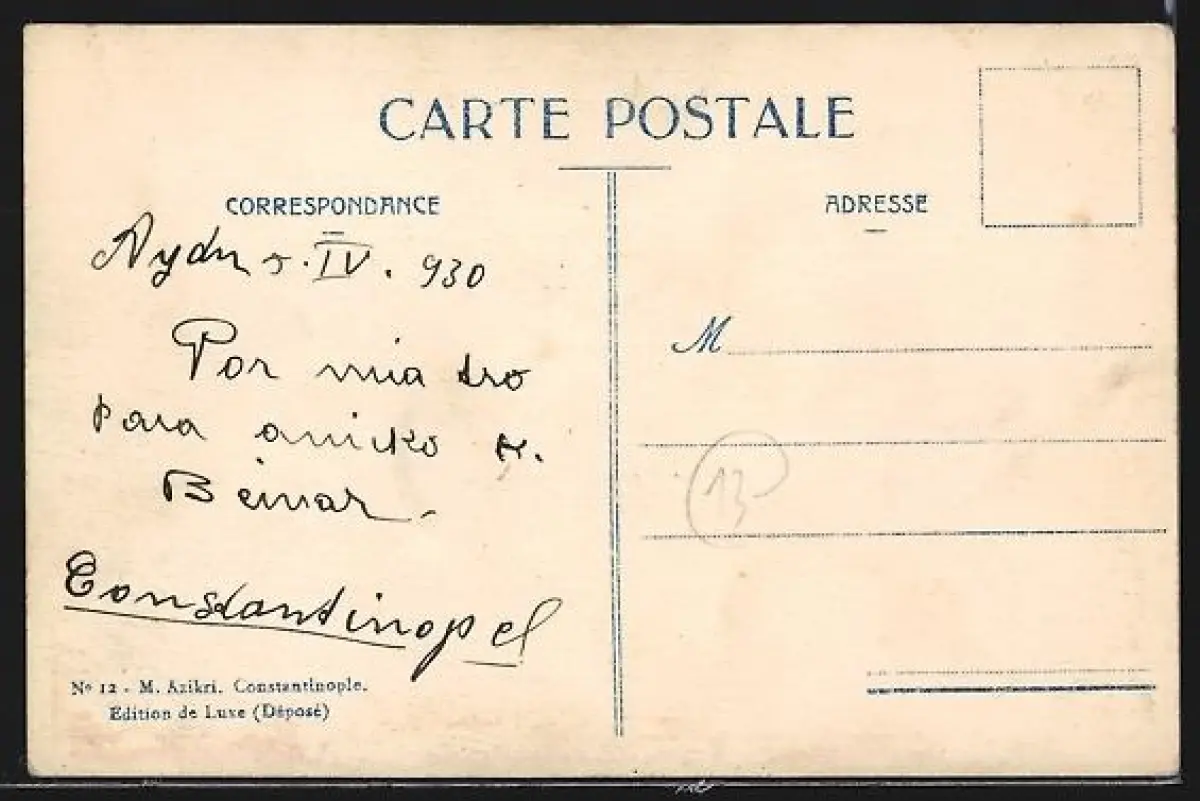 CARTE POSTALE
CORRESPONDANCE
ADRESSE
Aydın 5. IV. 930
Por mia tro
kara amiko K.
Beinar
Constantinopel
M
13
No 12 - M. Azikri. Constantinople.
Edition de Luxe (Déposé)